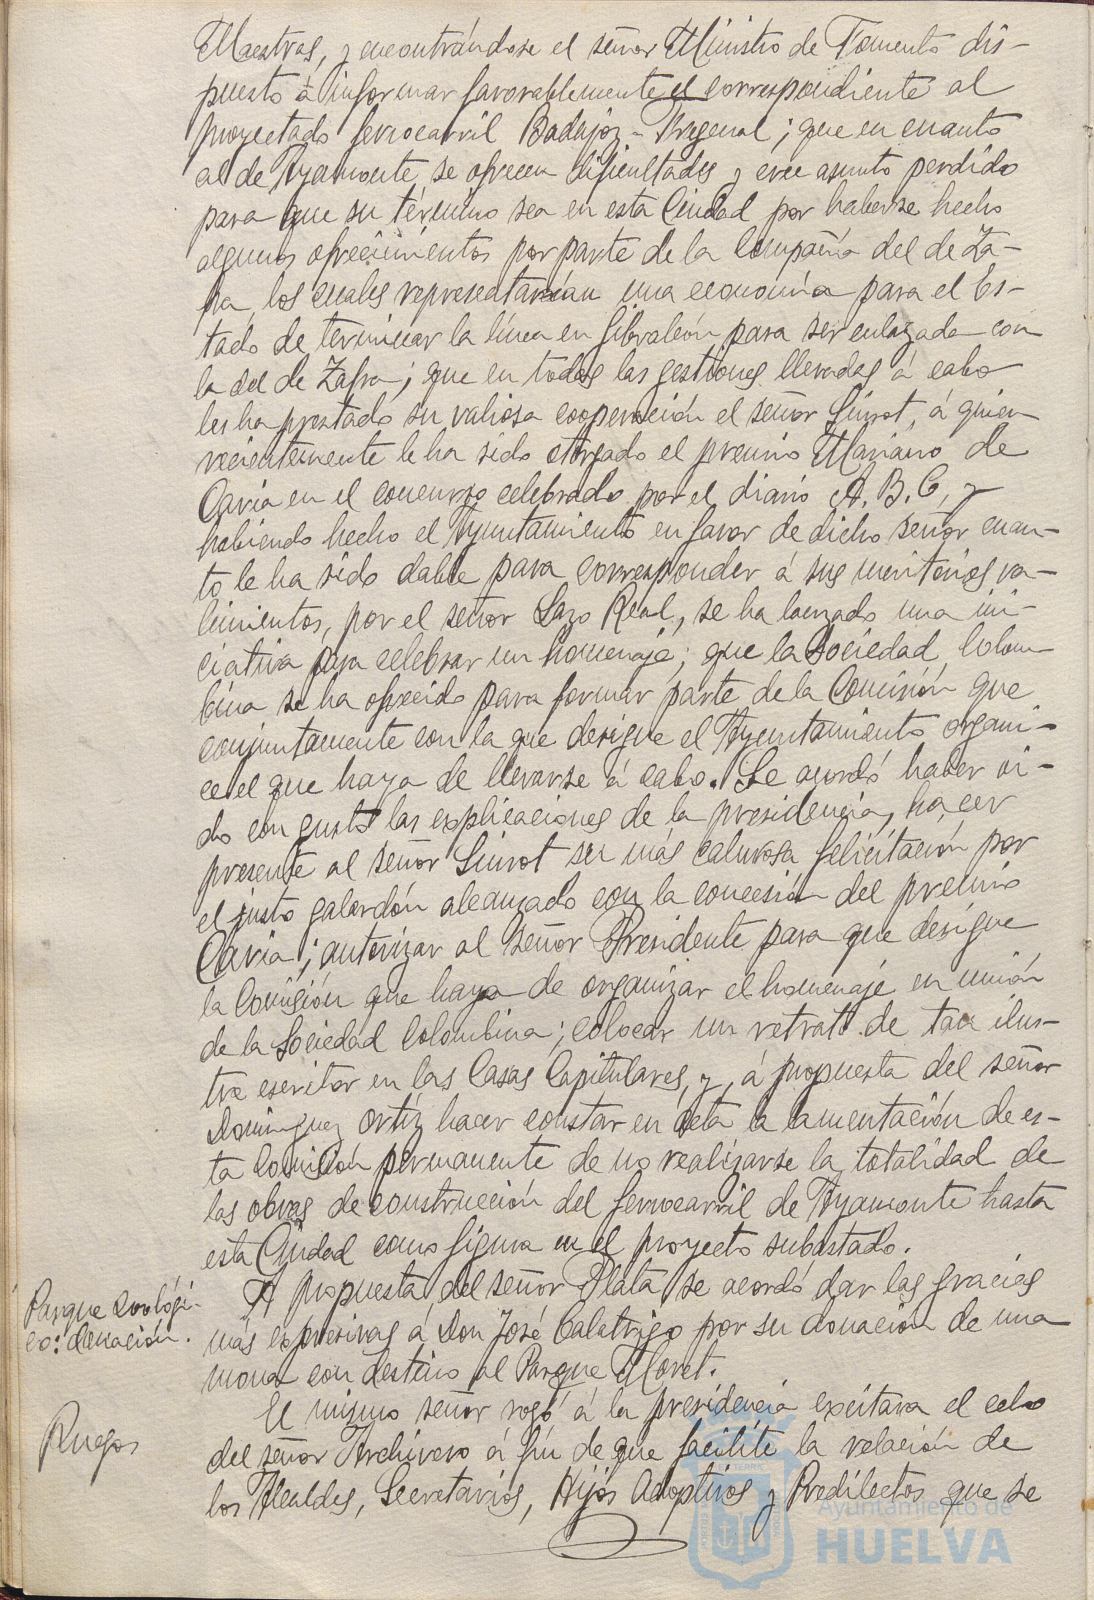 Maestras, y encontrándose el señor Ministro de Fomento dis-
puesto á informar favorablemente el correspondiente al
proyectado ferrocarril Badajoz-Fregenal; que en cuanto
al de Ayamonte se ofrecen dificultades y cree asunto perdido
para que su término sea en esta Ciudad por haberse hecho
algunos ofrecimientos por parte de la Compañia del de Za-
fra, los cuales representarían una economía para el Es-
tado de terminar la línea en Gibraleón para ser enlazada con
la del de Zafra; que en todas las gestiones llevadas á cabo
les ha prestado su valiosa cooperación el señor Siurot, á quien
recientemente le ha sido otorgado el premio Mariano de
Cavia en el concurso celebrado por el diario A.B.C, y
habiendo hecho el Ayuntamiento en favor de dicho señor cuan-
to le ha sido dable para corresponder á sus meritorios va-
limientos, por el señor Lazo Real, se ha lanzado una ini-
ciativa para celebrar un homenaje; que la Sociedad Colom-
bina se ha ofrecido para formar parte de la Comisión que
conjuntamente con la que designe el Ayuntamiento organi-
ce el que haya de llevarse á cabo. Se acordó haber oi-
do con gusto las explicaciones de la presidencia, hacer
presente al señor Siurot su más calurosa felicitación por
el justo galardón alcanzado con la concesión del premio
Cavia; autorizar al señor Presidente para que designe
la Comisión que haya de organizar el homenaje en unión
de la Sociedad Colombina; colocar un retrato de tan ilus-
tre escritor en las Casas Capitulares, y, á propuesta del señor
Dominguez Ortiz hacer constar en acta la lamentación de es-
ta Comisión permanente de no realizarse la totalidad de
las obras de construcción del ferrocarril de Ayamonte hasta
esta Ciudad como figura en el proyecto subastado.
Parque Zoológi-
co: donación.
A propuesta del señor Plata se acordó dar las gracias
más expresivas á Don José Calatrigo por su donación de una
mona con destino al Parque Moret.
Ruegos
El mismo señor rogó á la presidencia excitara el celo
del señor Archivero á fin de que facilite la relación de
los Alcaldes, Secretarios, Hijos Adoptivos y Predilectos que se
Ayuntamiento de
HUELVA